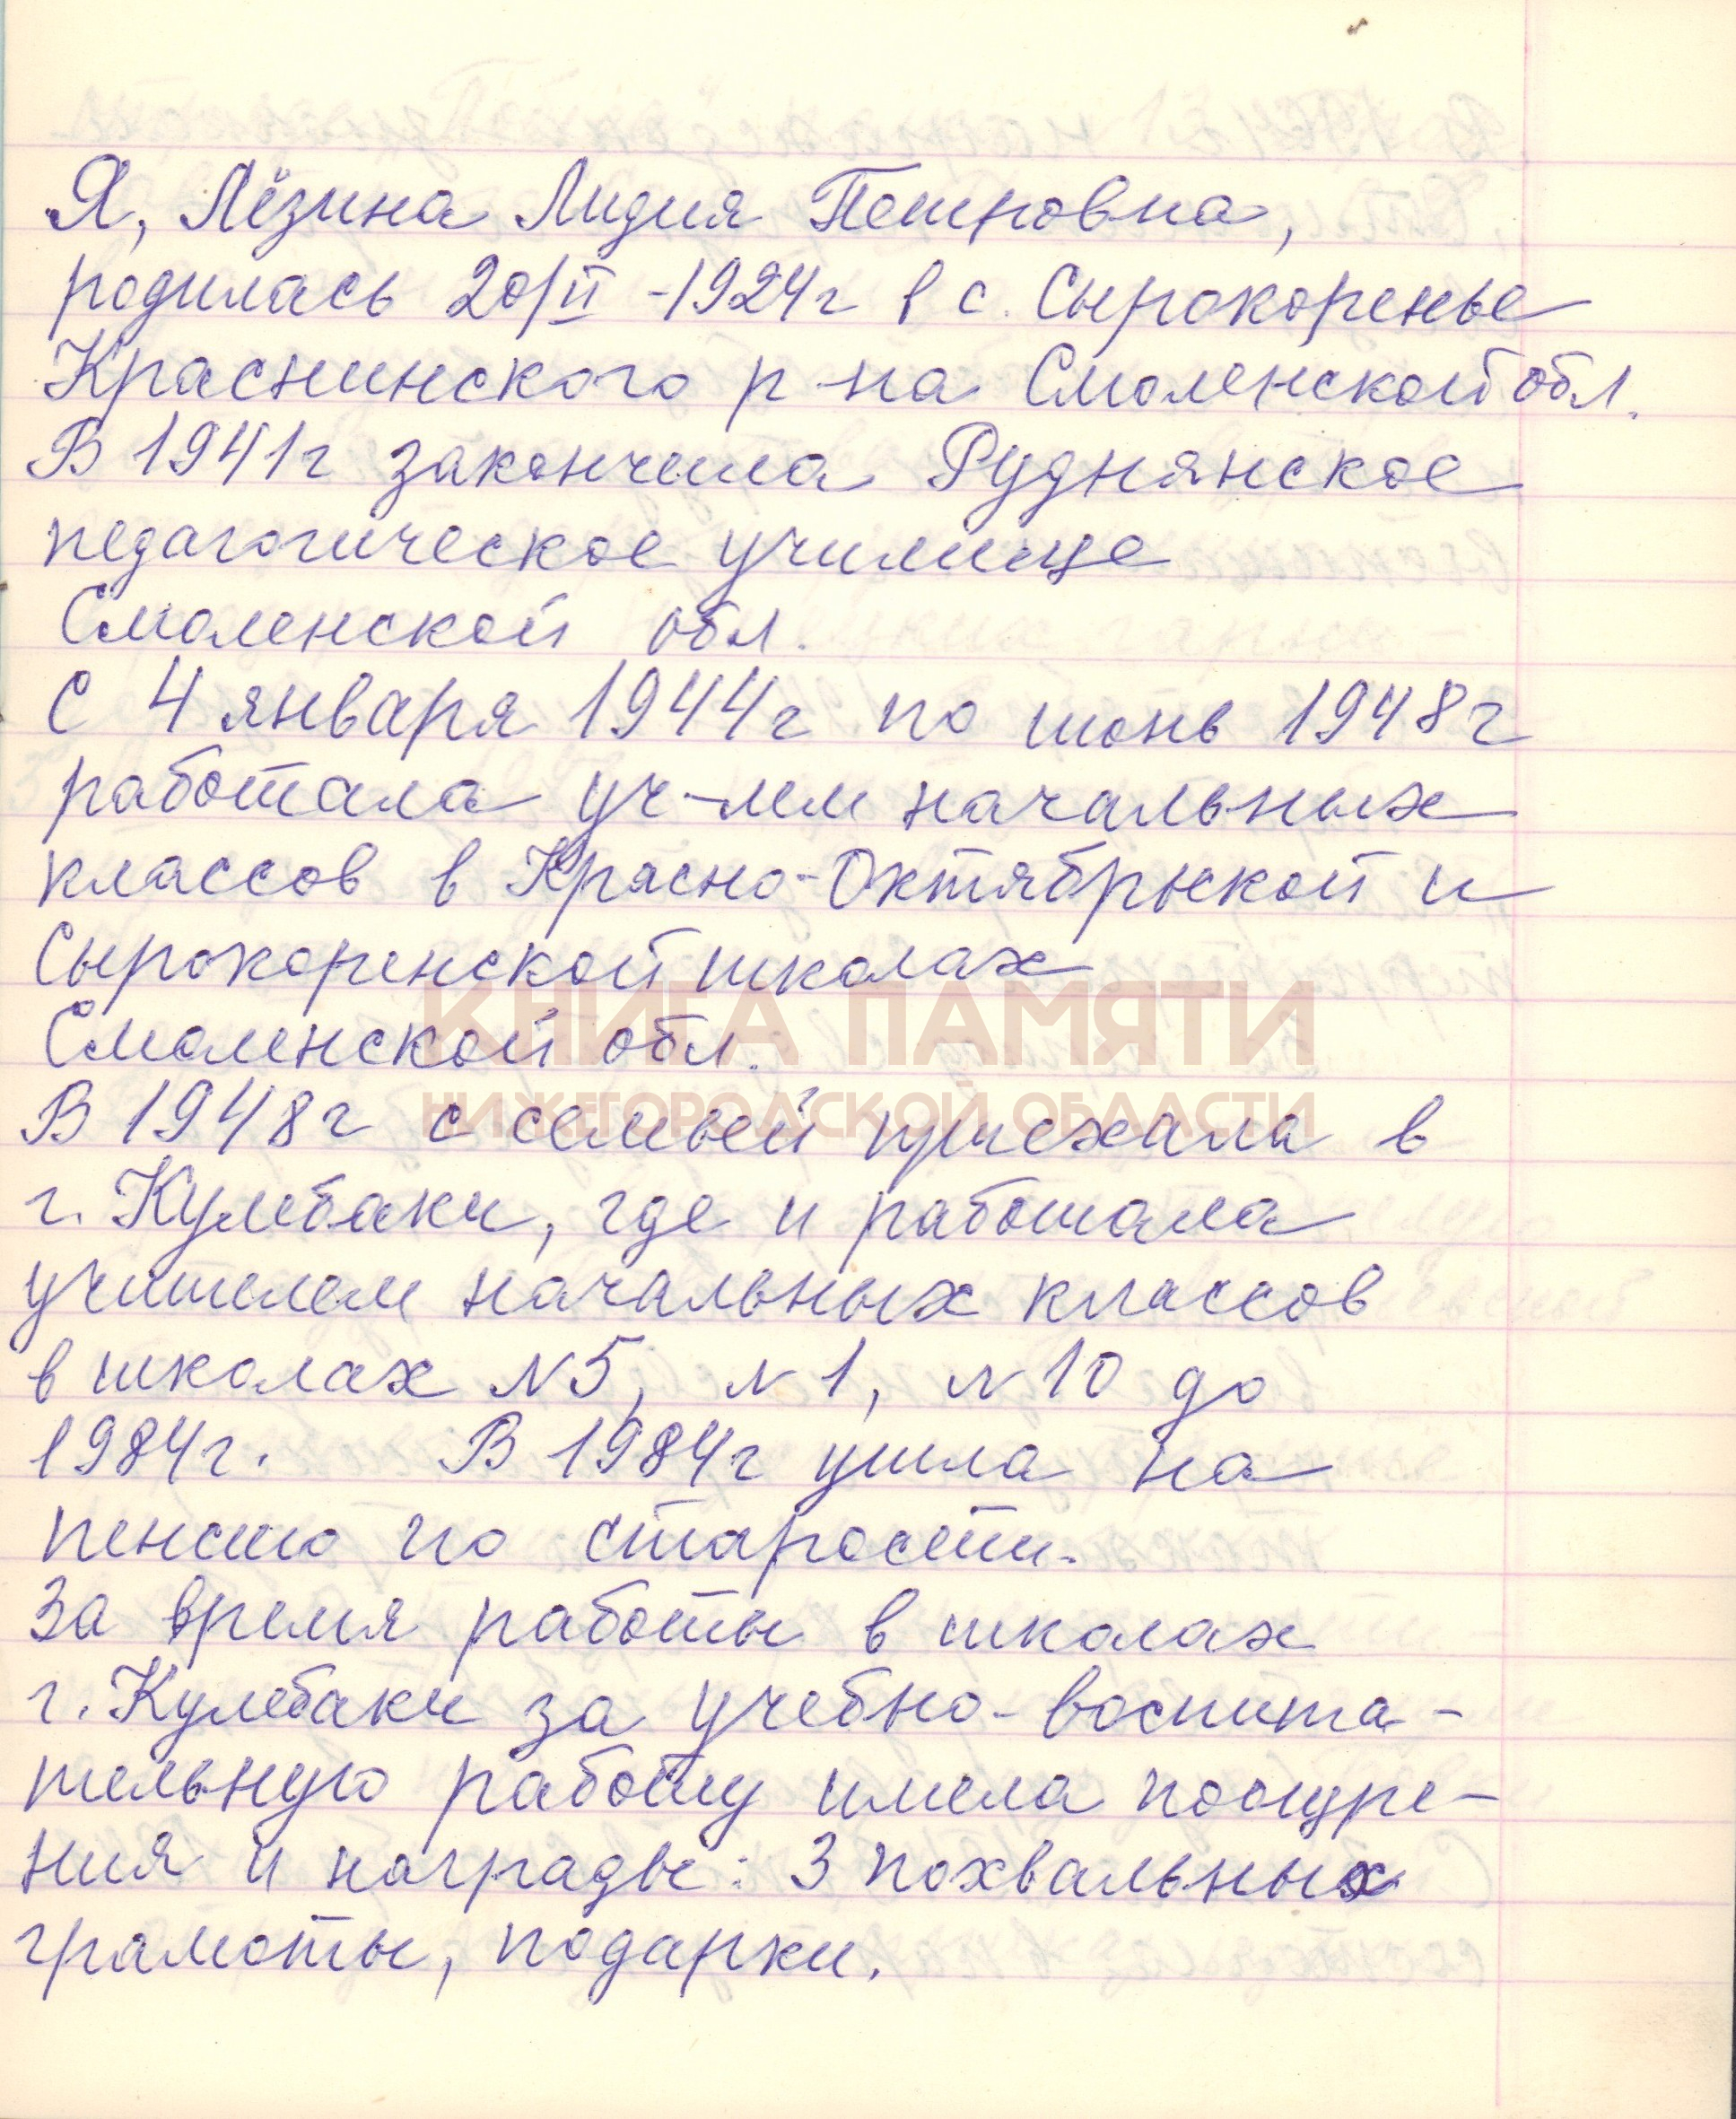 Я, Лёзина Лидия Петровна,
родилась 20/II -1924г в с. Сырокоренье
Краснинского р-на Смоленской обл.
В 1941г закончила Руднянское
педагогическое училище
Смоленской обл.
С 4 января 1944г по июнь 1948г
работала уч-лем начальных
классов в Красно-Октябрьской и
Сырокоренской школах
КНИГА ПАМЯТИ
Смоленской обл.
НИЖЕГОРОДСКОЙ ОБЛАСТИ
В 1948г с семьей приехала в
г. Кулебаки, где и работала
учителем начальных классов
в школах N5, N1, N10 до
1984г. В 1984г ушла на
пенсию по старости.
За время работы в школах
г. Кулебаки за учебно-воспита-
тельную работу имела поощре-
ния и награды: 3 похвальных
грамоты, подарки.